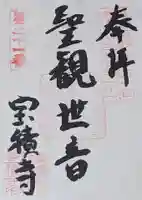 奉拝
聖観世音
宝積寺